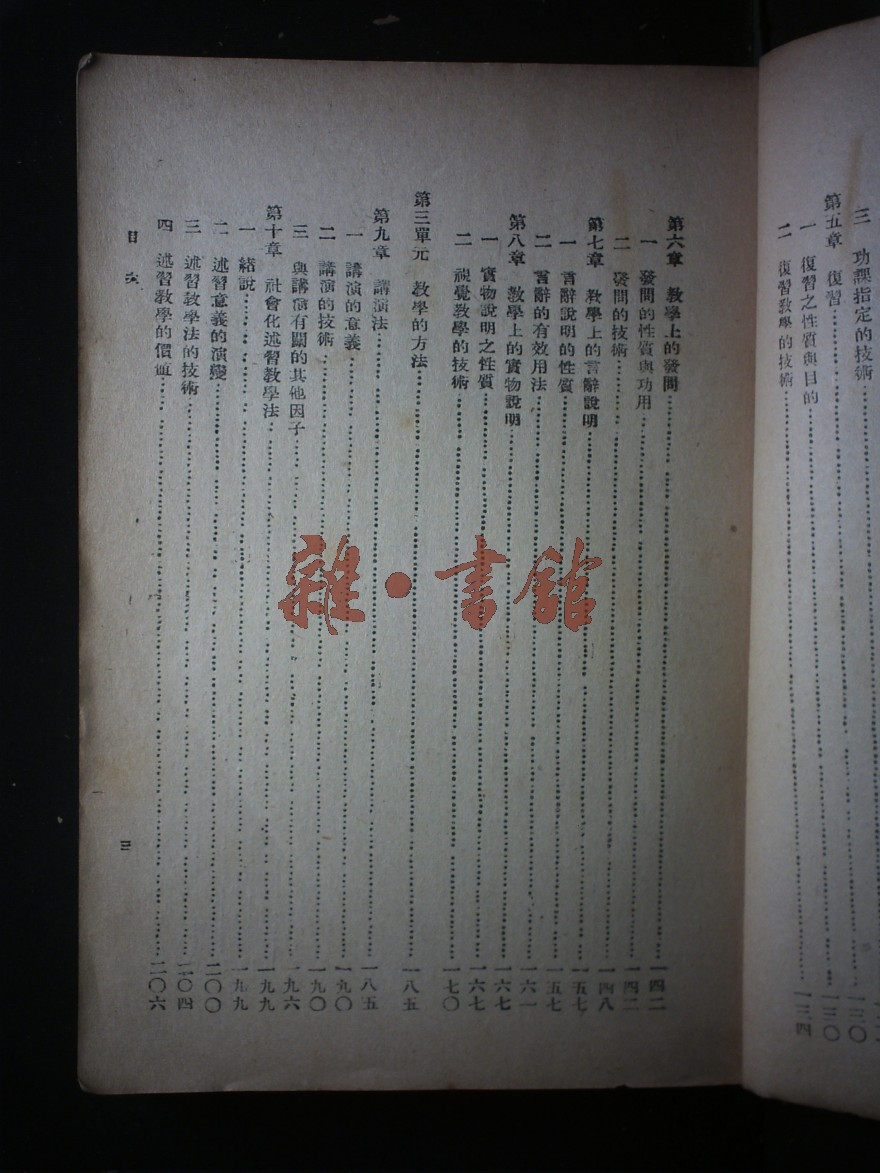 三 功課指定的技術……一三〇
第五章 復習……一三〇
一 復習之性質與目的……一三〇
二 復習教學的技術……一三四
第六章 教學上的發問……一四二
一 發問的性質與功用……一四二
二 發問的技術……一四八
第七章 教學上的言辭說明……一五七
一 言辭說明的性質……一五七
二 言辭的有效用法……一六一
第八章 教學上的實物說明……一六七
一 實物說明之性質……一六七
二 視覺教學的技術……一七〇
第三單元 教學的方法……一八五
第九章 講演法……一八五
一 講演的意義……一九〇
二 講演的技術……一九〇
三 與講演有關的其他因子……一九六
第十章 社會化述習教學法……一九九
一 緒說……一九九
二 述習意義的演變……二〇〇
三 述習教學法的技術……二〇四
四 述習教學的價值……二〇六
目次
三
雜·書館